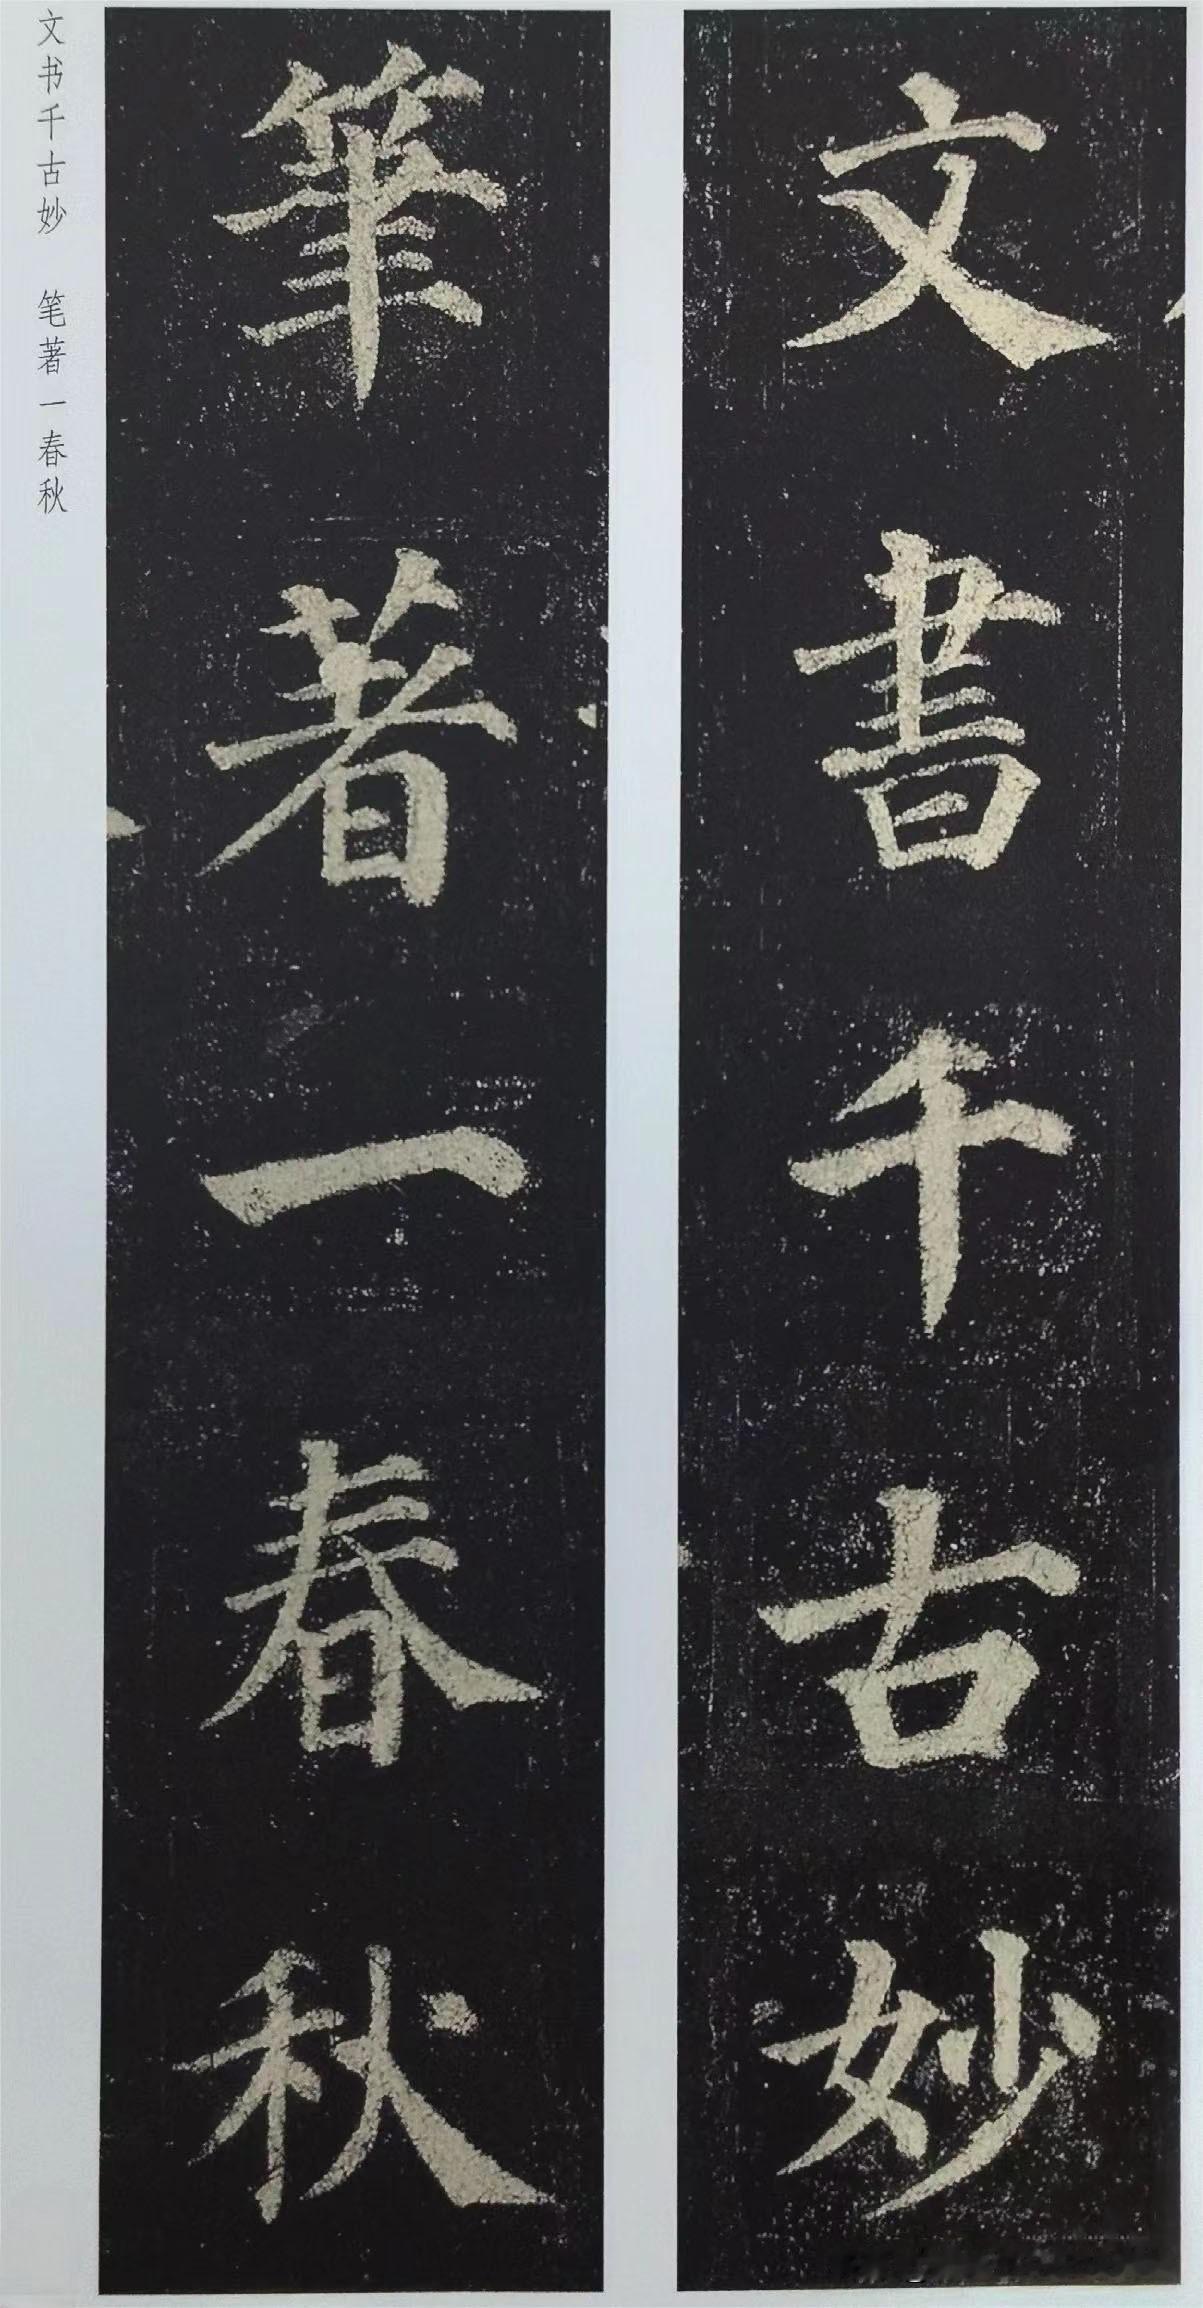 文書千古妙
筆著一春秋
文书千古妙　笔著一春秋